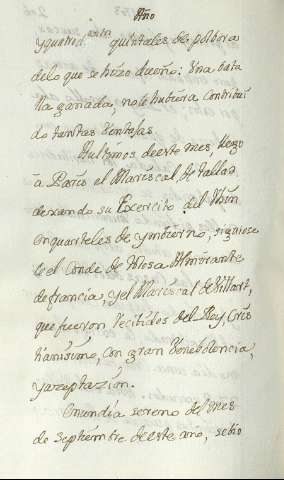 Año
y quatro  quintales de polbora
de lo que se hizo dueño: Una bata
lla ganada, no le hubiera contribui
do tantas Ventajas.
A ultimos de este mes llego
à Paris el Mariscal de tallard
dexando su Exercito del Rhin
en quarteles de ymbierno, siguiese
le el Conde de tolosa Almirante
de francia, y el Mariscal de Villars,
que fueron recibidos del Rey Cris
tianissimo, con gran benebolencia,
y azeptazion.
En un dia sereno del mes
de septiembre de este año, se bio